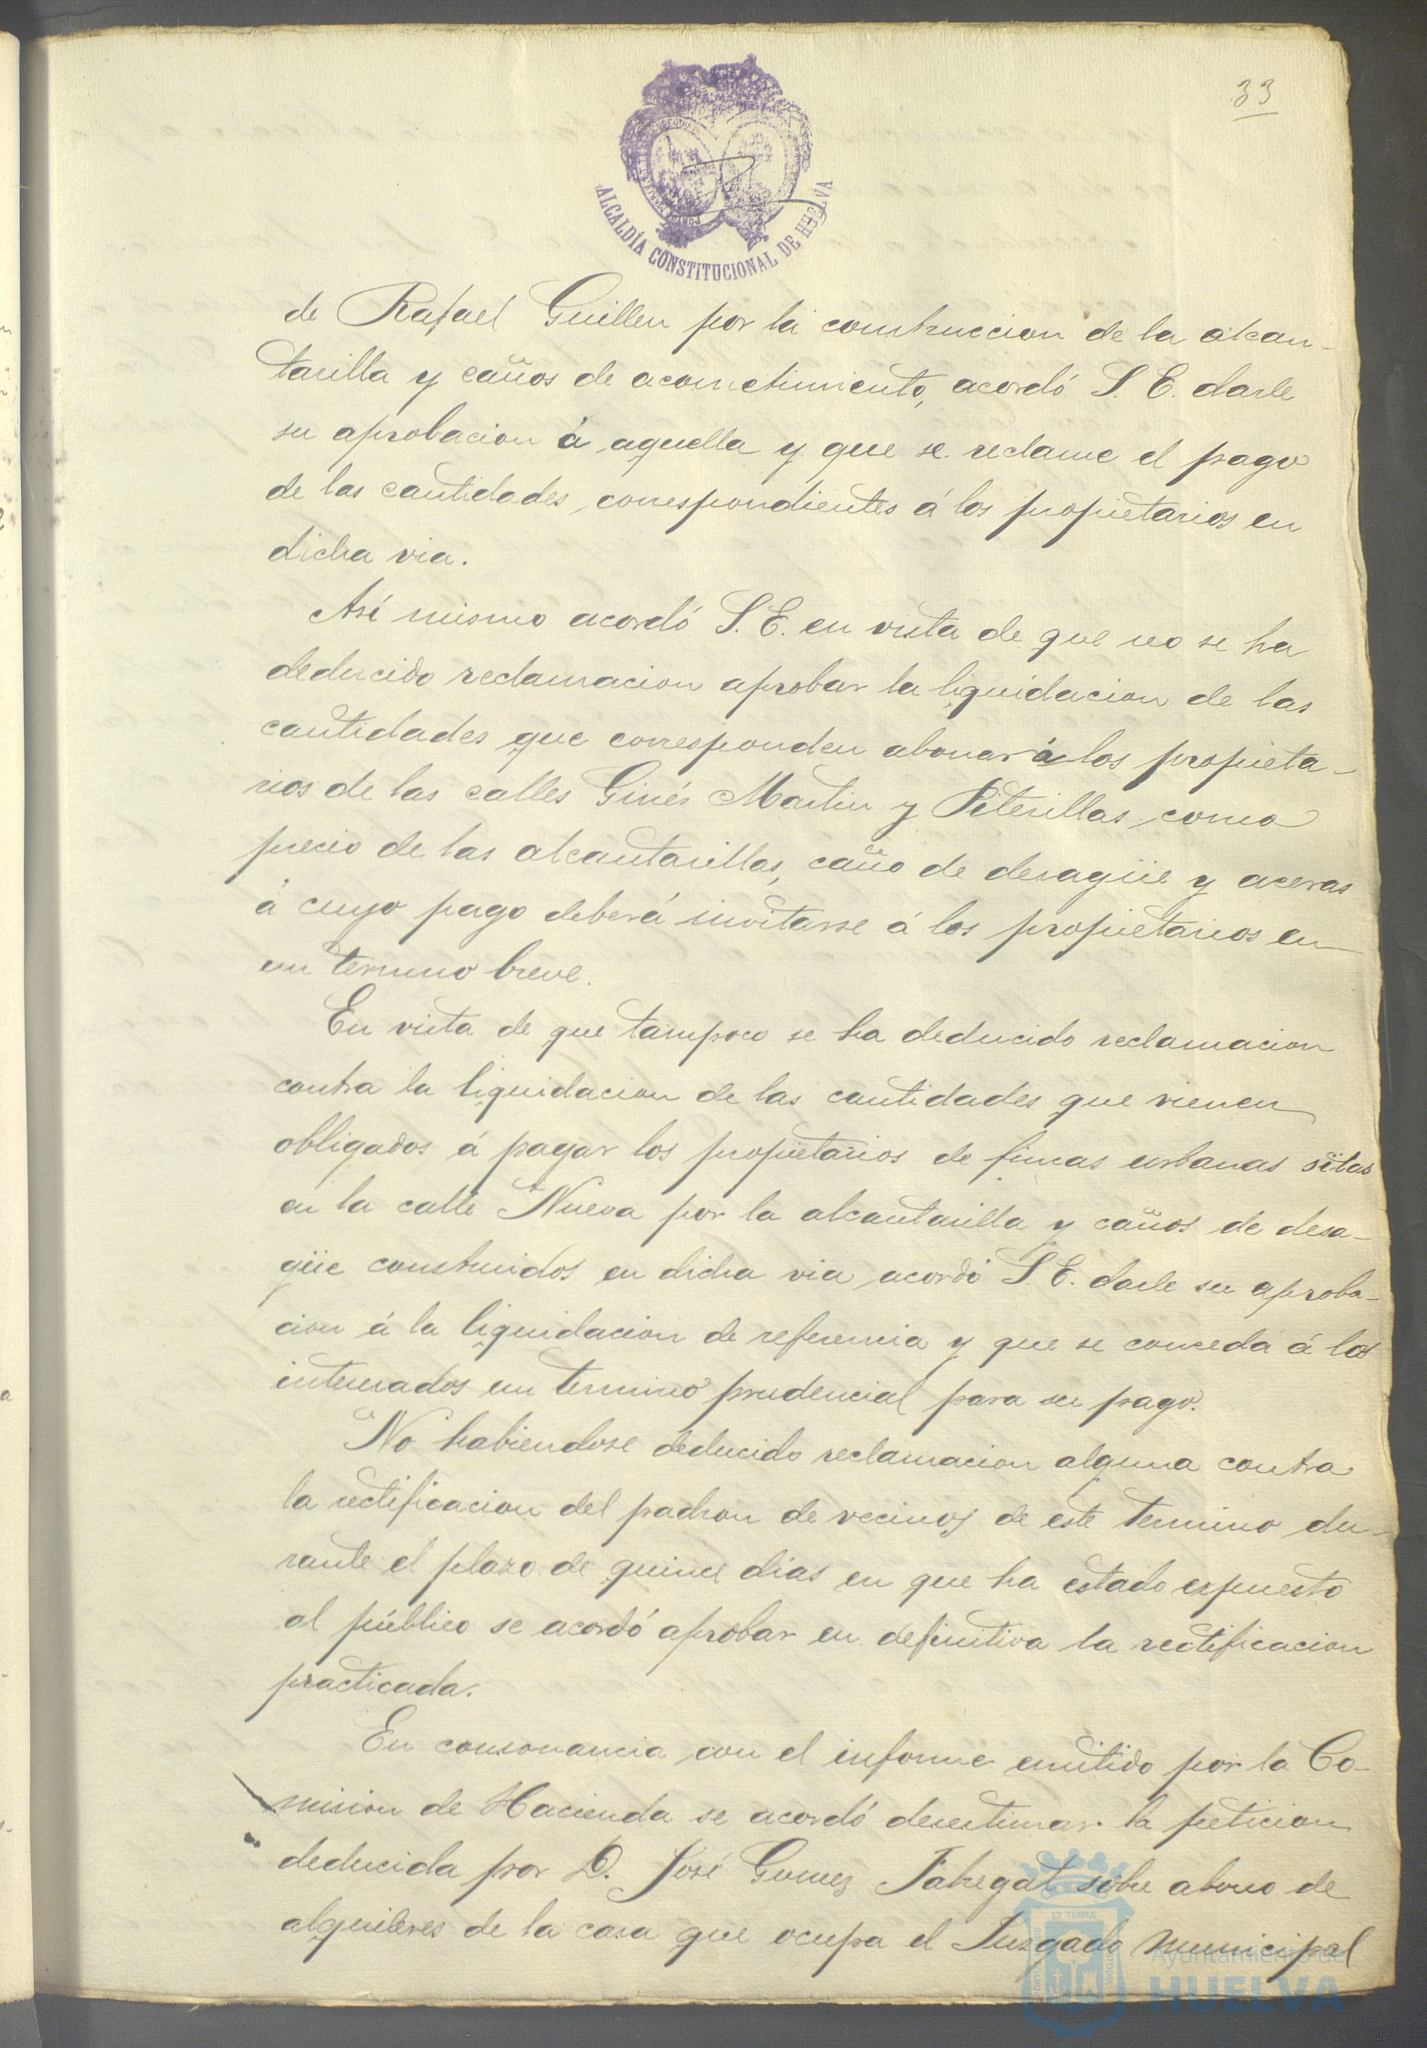 33
ALCALDÍA CONSTITUCIONAL DE HUELVA
de Rafael Guillen por la construccion de la alcan-
tarilla y caños de acometimiento, acordó S. E. darle
su aprobacion á aquella y que se reclame el pago
de las cantidades correspondientes á los propietarios en
dicha via.
Así mismo acordó S. E. en vista de que no se ha
deducido reclamacion aprobar la liquidacion de las
cantidades que corresponden abonar á los propieta-
rios de las calles Ginés Martin y Peterillas, como
precio de las alcantarillas, caño de desagüe y aceras
á cuyo pago deberá invitarse á los propietarios en
un termino breve.
En vista de que tampoco se ha deducido reclamacion
contra la liquidacion de las cantidades que vienen
obligados á pagar los propietarios de fincas urbanas sitas
en la calle Nueva por la alcantarilla y caños de desa-
güe construidos en dicha via acordó S. E. darle su aproba-
cion á la liquidacion de referencia y que se conceda á los
interesados un termino prudencial para su pago.
No habiendose deducido reclamacion alguna contra
la rectificacion del padron de vecinos de este termino du-
rante el plazo de quince dias en que ha estado expuesto
al público se acordó aprobar en definitiva la rectificacion
practicada.
En consonancia con el informe emitido por la Co-
mision de Hacienda se acordó desestimar la peticion
deducida por D. José Gomez Fabregat sobre abono de
alquileres de la casa que ocupa el Juzgado municipal
Ayuntamiento de
HUELVA